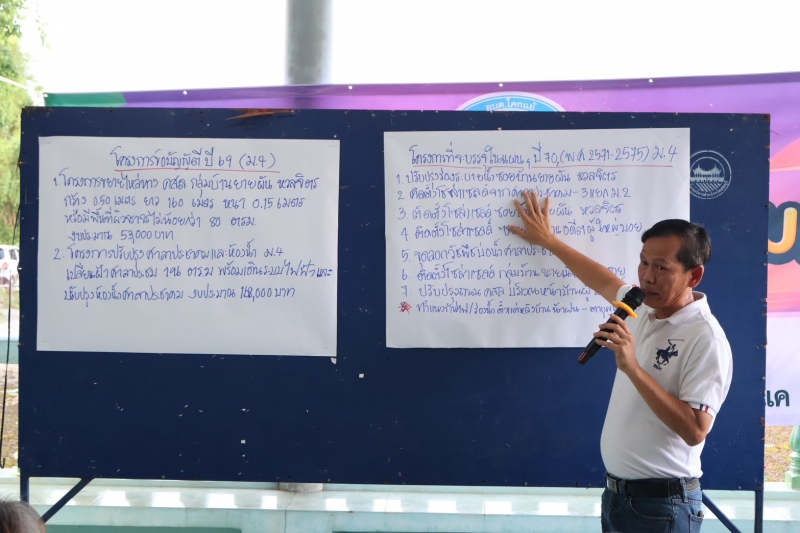 อบต.โคกแย้
โครงการข้อบัญญัติ ปี 69 (ม.4)
1. โครงการขยายไหล่ทาง คสล กลุ่มบ้านยายผัน หวลจิตร
กว้าง 0.50 เมตร ยาว 160 เมตร หนา 0.15 เมตร
หรือมีพื้นที่ผิวจราจรไม่น้อยกว่า 80 ตรม.
งบประมาณ 53,000 บาท
2. โครงการปรับปรุงศาลาประชาคมและห้องน้ำ ม.4
เปลี่ยนฝ้าศาลาประชม 196 ตร.ม พร้อมเดินระบบไฟฟ้าและ
ปรับปรุงห้องน้ำศาลาประชาคม งบประมาณ
โครงการที่จะบรรจุในแผนฯ ปี 70, (พ.ศ 2571-2575) ม.4
1. ปรับปรุงร่องระบายน้ำซอยบ้านยายผัน หวลจิตร
2. ติดตั้งโซล่าเซลล์จากศาลาประชาคม-3แยก ม.2
3. ติดตั้งโซล่าเซลล์ ซอย ผัน หวลจิตร
4. ติดตั้งโซล่าเซลล์ บ้านอดีตผู้ใหญ่
5. ขุดลอกวัชพืชบ่อน้ำศาลาประชา
6. ติดตั้งโซล่าเซลล์ กลุ่มบ้าน
7. ปรับปรุงถนน คสล บริเวณหน้าบ้าน